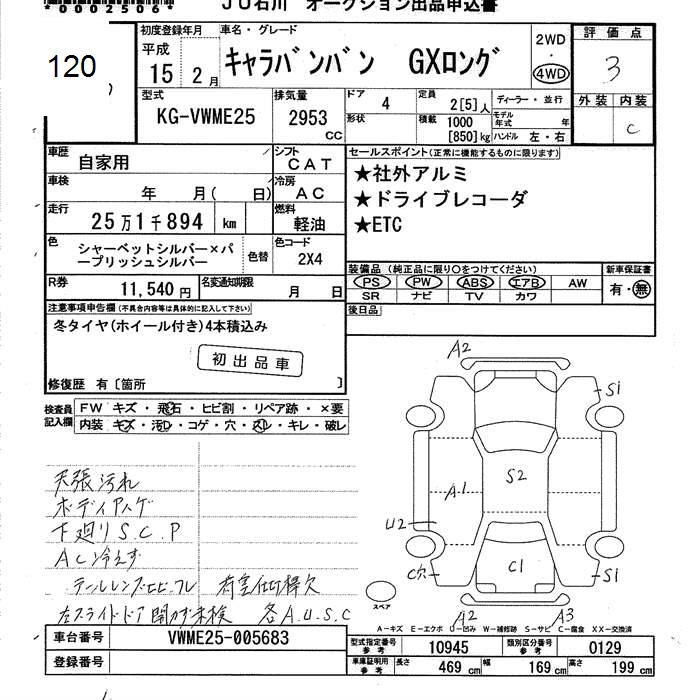 *0002506*
JU石川 オークション出品申込書
120
初度登録年月 車名・グレード
平成 15 2月 キャラバンバン GXロング
2WD
4WD
評価点
3
外装 内装
C
型式 排気量 ドア 定員 ディーラー・並行
KG-VWME25 2953 CC 4 2[5]人
形状 積載 モデル年式 年
1000 [850]kg ハンドル 左・右
車歴 自家用 シフト CAT
車検 年 月( 日) 冷房 AC
走行 25万1千894 km 燃料 軽油
色 シャーベットシルバー×パープリッシュシルバー 色替 色コード 2X4
R券 11,540円 名変通知期限 月 日
セールスポイント(正常に機能するものに限ります)
★社外アルミ
★ドライブレコーダ
★ETC
装備品(純正品に限り○をつけてください) 新車保証書
PS PW ABS エアB AW 有・無
SR ナビ TV カワ
後日品
注意事項申告欄(不具合内容等は具体的に記入して下さい)
冬タイヤ(ホイール付き)4本積込み
初出品車
修復歴 有〔箇所 〕
検査員記入欄 FW キズ・飛石・ヒビ割・リペア跡・×要
内装 キズ・汚レ・コゲ・穴・スレ・キレ・破レ
天張汚れ
ボディアゲ
下廻りS.C.P
AC冷えず
テールレンズヒビ・ワレ
左スライドドア開かず未検 各A.U.S.C
A2
S1
A1
S2
U2
C穴
C1
S1
A2
A3
スペア
A-キズ E-エクボ U-凹み W-補修跡 S-サビ C-腐食 XX-交換済
車台番号 VWME25-005683
登録番号
型式指定番号 参考 10945 類別区分番号 参考 0129
車庫証明用 参考 長さ 469 cm 幅 169 cm 高さ 199 cm